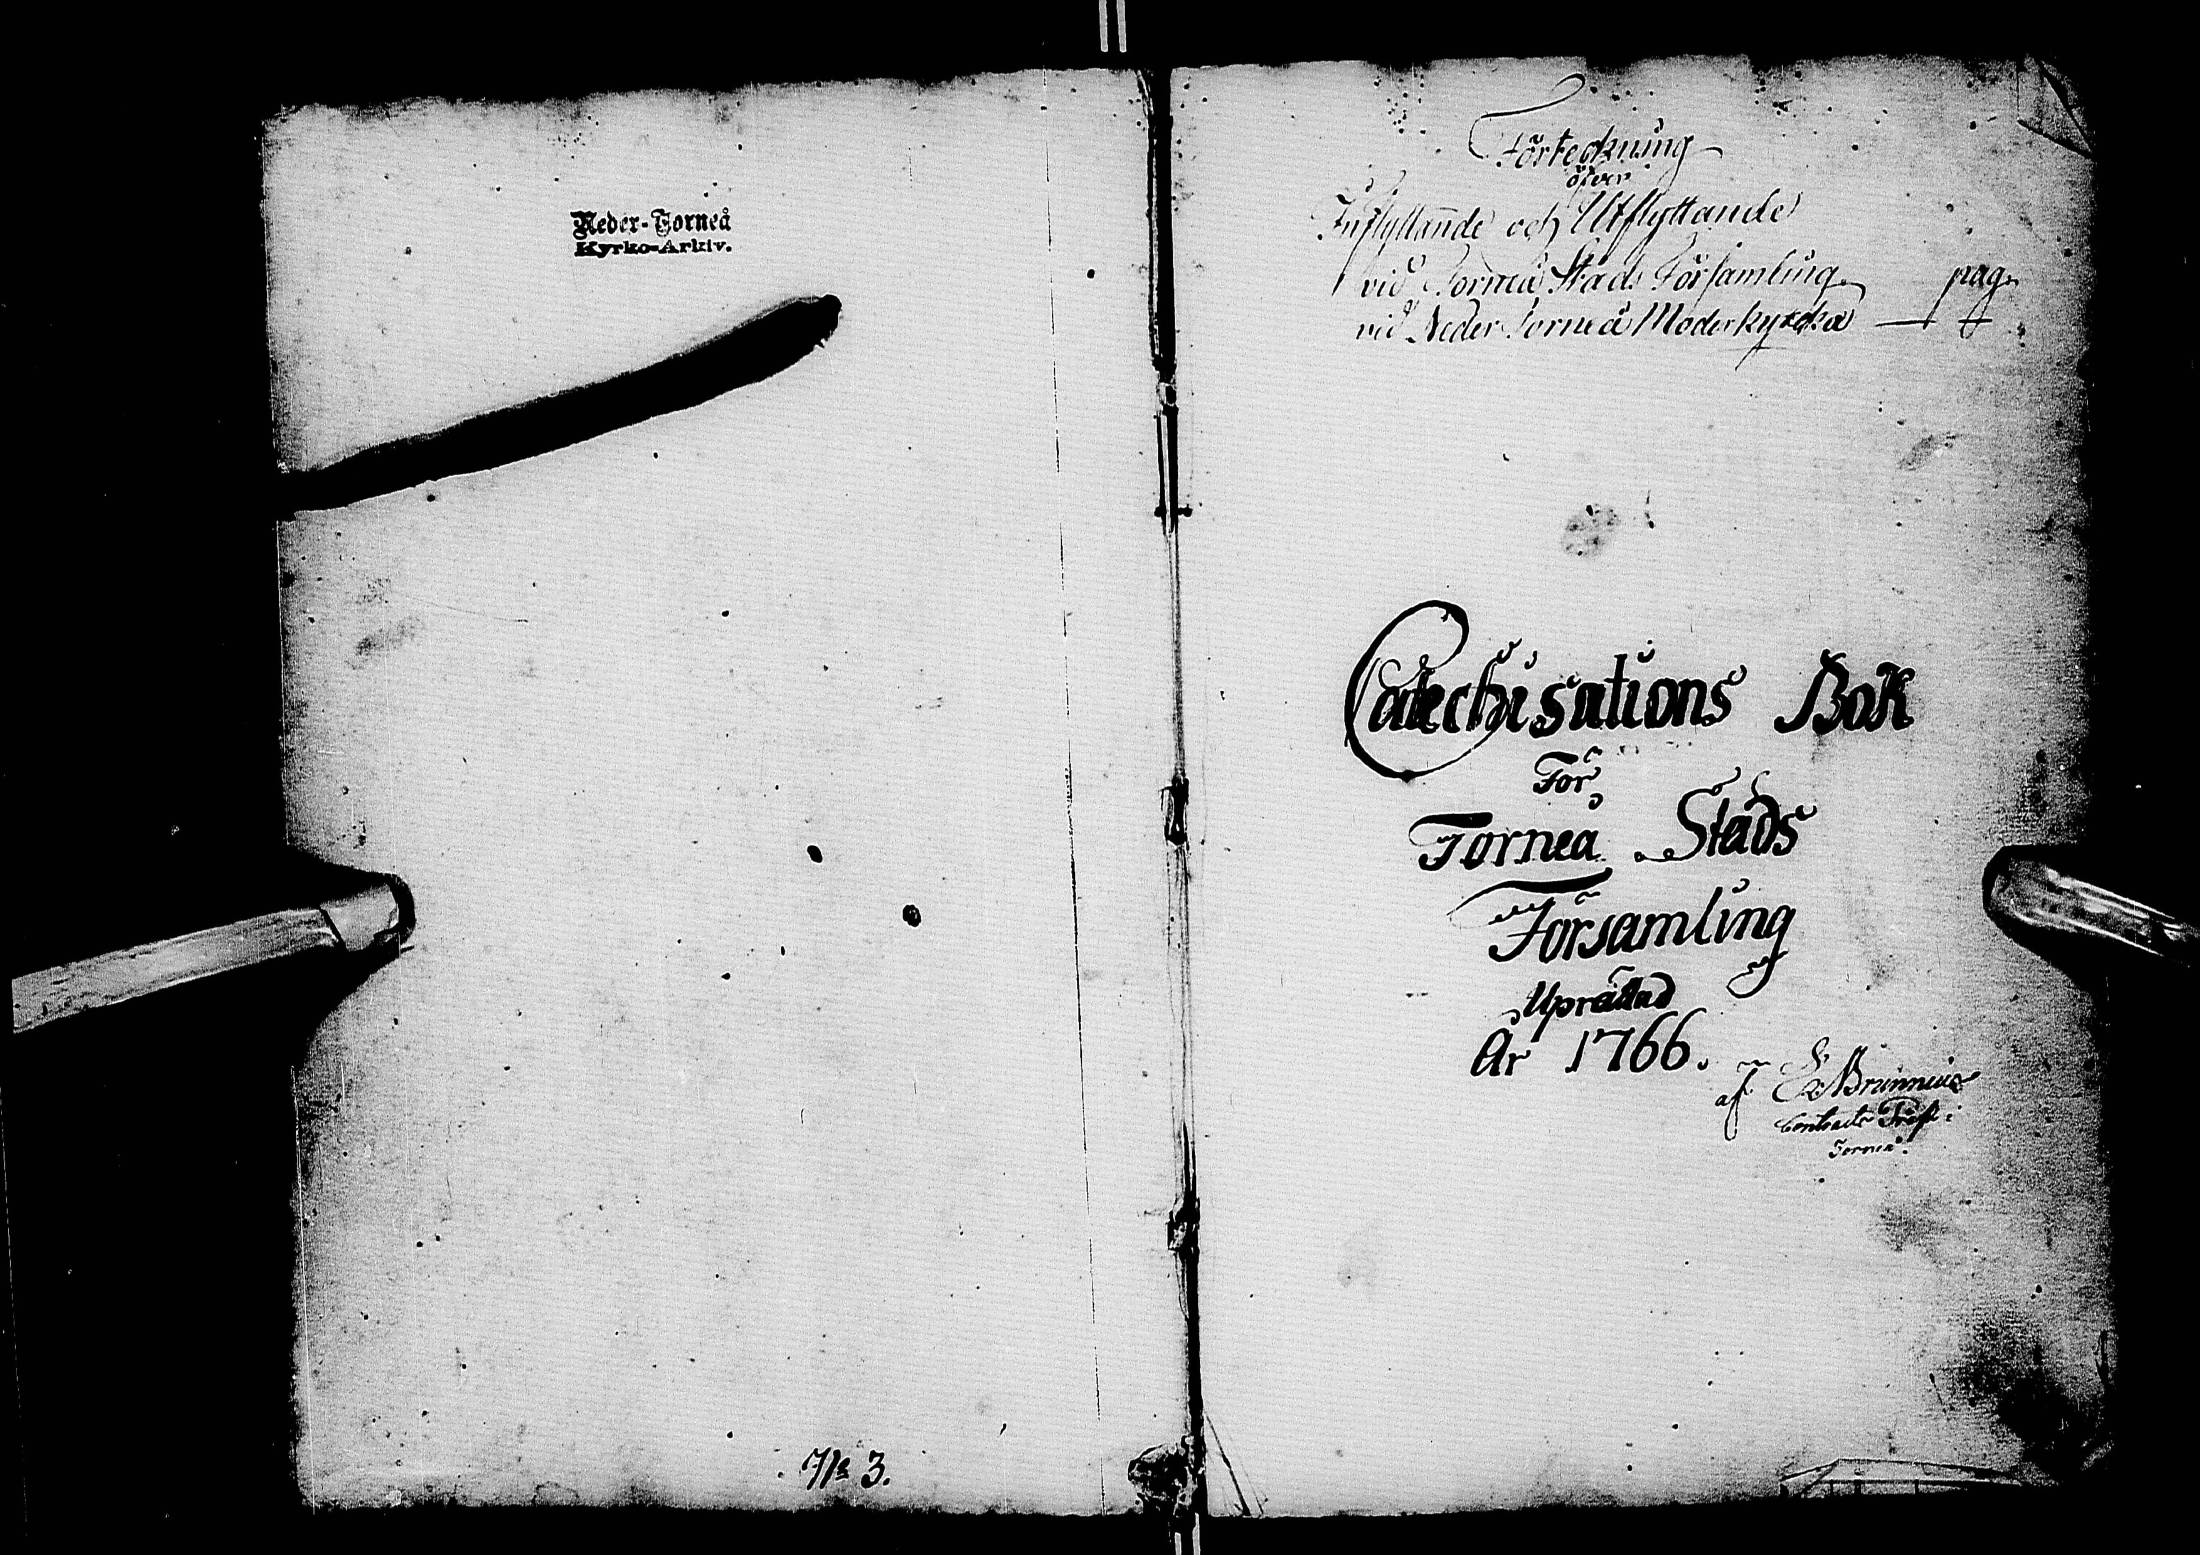 Neder-Torneå
Kyrko-Arkiv.
No 3.
Förteckning
öfver
Inflyttande och Utflyttande
vid Torneå Stads Församling pag.
vid Neder Torneå Moderkyrcka
Catechisations Bok
För
Torneå Stads
Församling
Uprättad
År 1766.
af Brunnius
Contracts Pros: i
Torneå.